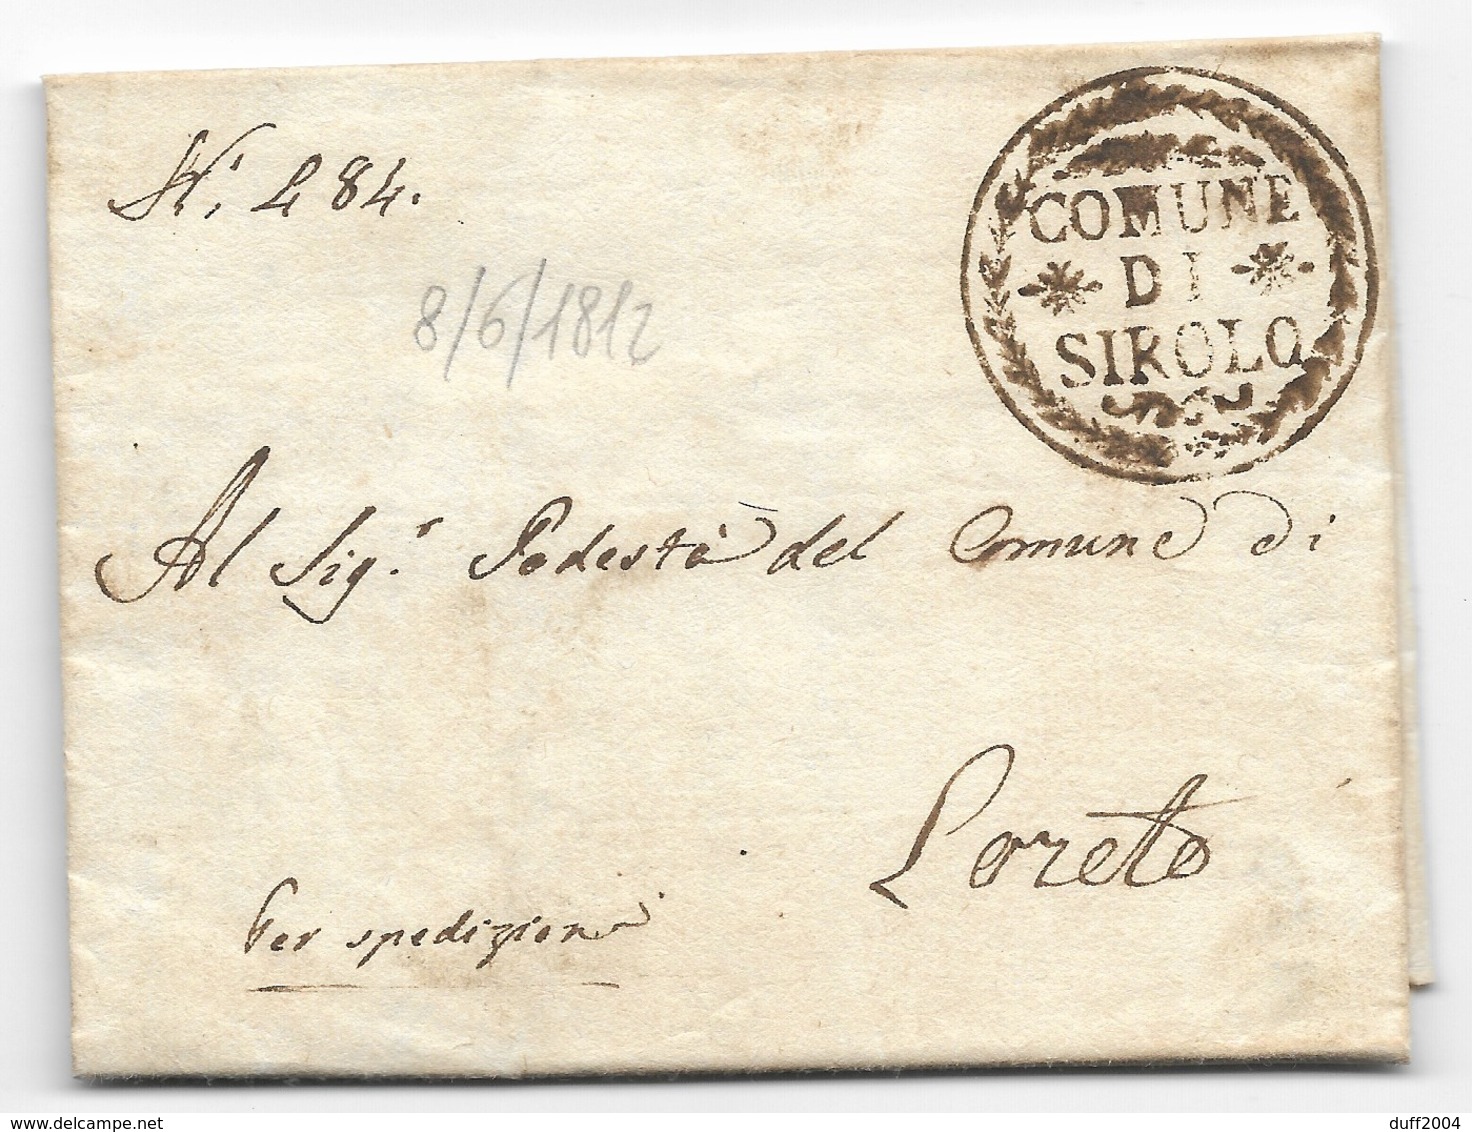 N.° 284.
COMUNE
DI
SIROLO
8/6/1812
Al Sig.r Podestà del Comune di
Loreto
Per spedizione
delcampe.net
duff2004